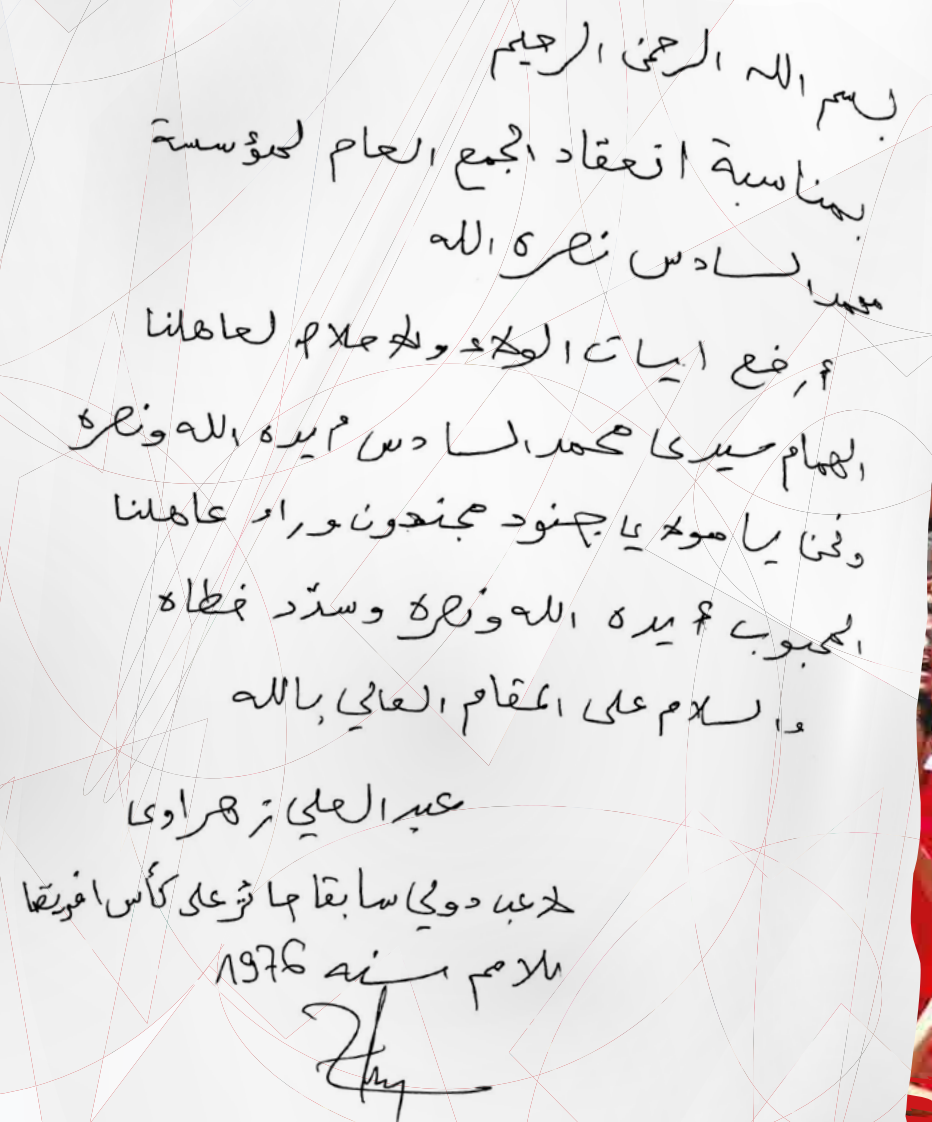 بسم الله الرحمن الرحيم
بمناسبة انعقاد الجمع العام لمؤسسة
محمد السادس نصره الله
أرفع ايات الولاء والاخلاص لعاهلنا
الهمام سيدي محمد السادس أيده الله ونصره
ونحن يا مولاي جنود مجندون وراء عاهلنا
المحبوب أيده الله ونصره وسدّد خطاه
والسلام على المقام العالي بالله
عبد العلي زهراوي
لاعب دولي سابقا حائز على كأس افريقيا
للامم سنه 1976